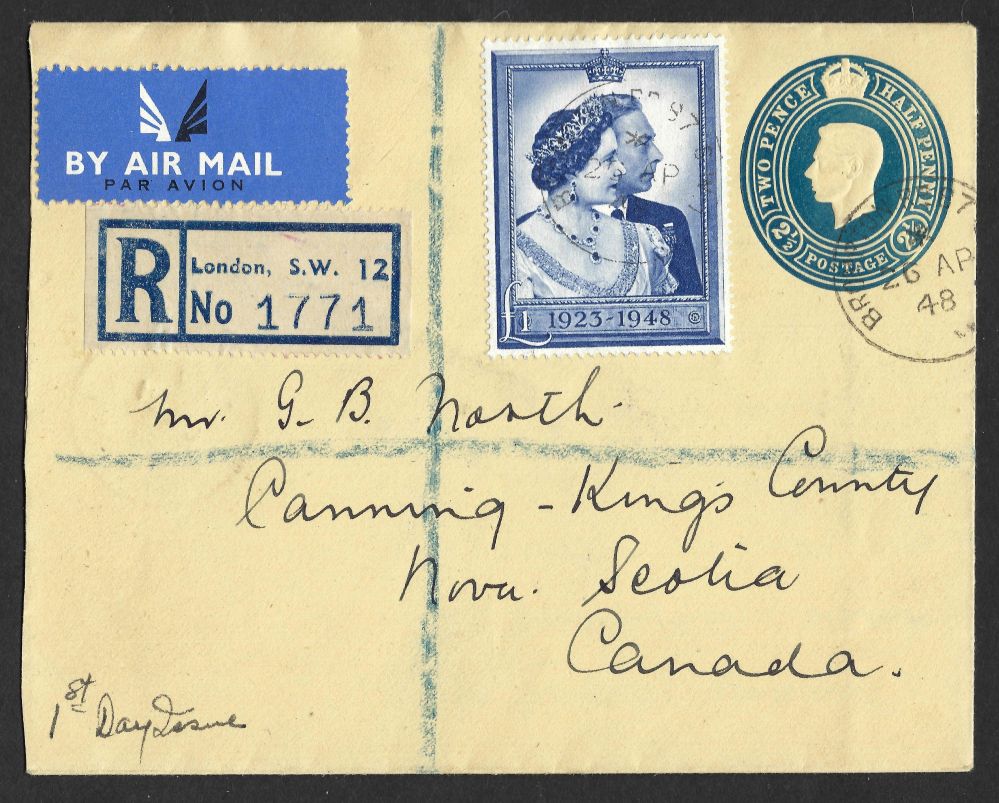 BY AIR MAIL
PAR AVION
R
London, S.W. 12
No 1771
£1 1923-1948
26 AP
TWO PENCE HALFPENNY
2½ POSTAGE 2½
26 AP
48
Mr. G. B. North.
Canning - Kings County
Nova. Scotia
Canada.
1st Day Issue